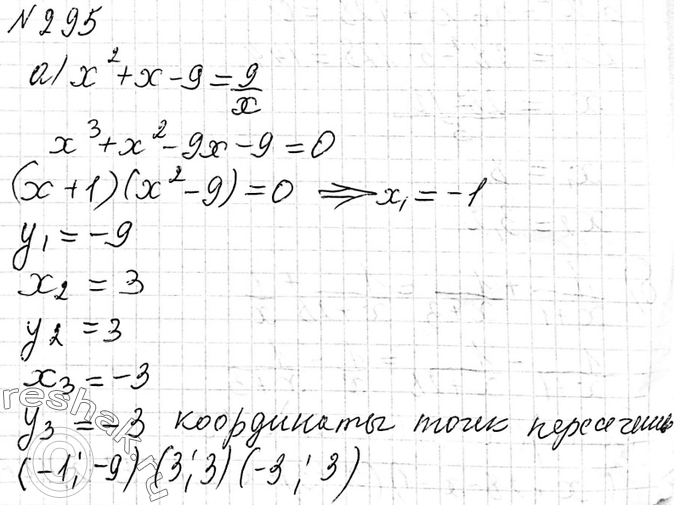 №295
а) x² + x - 9 = 9/x
x³ + x² - 9x - 9 = 0
(x + 1)(x² - 9) = 0 ⇒ x₁ = -1
y₁ = -9
x₂ = 3
y₂ = 3
x₃ = -3
y₃ = -3 координаты точек пересечень
(-1; -9) (3; 3) (-3; 3)
reshak.ru